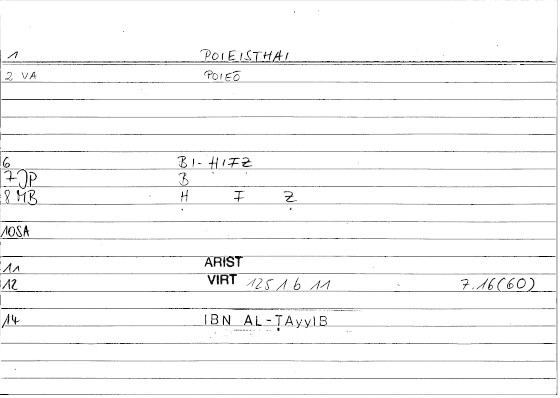 1 POIEISTHAI
2 VA POIEŌ
6 BI- ḤIFẒ
7 JP B
8 MB Ḥ F Ẓ
10SA
11 ARIST
12 VIRT 1251 b 11 7.16(60)
14 IBN AL-ṬAyyIB